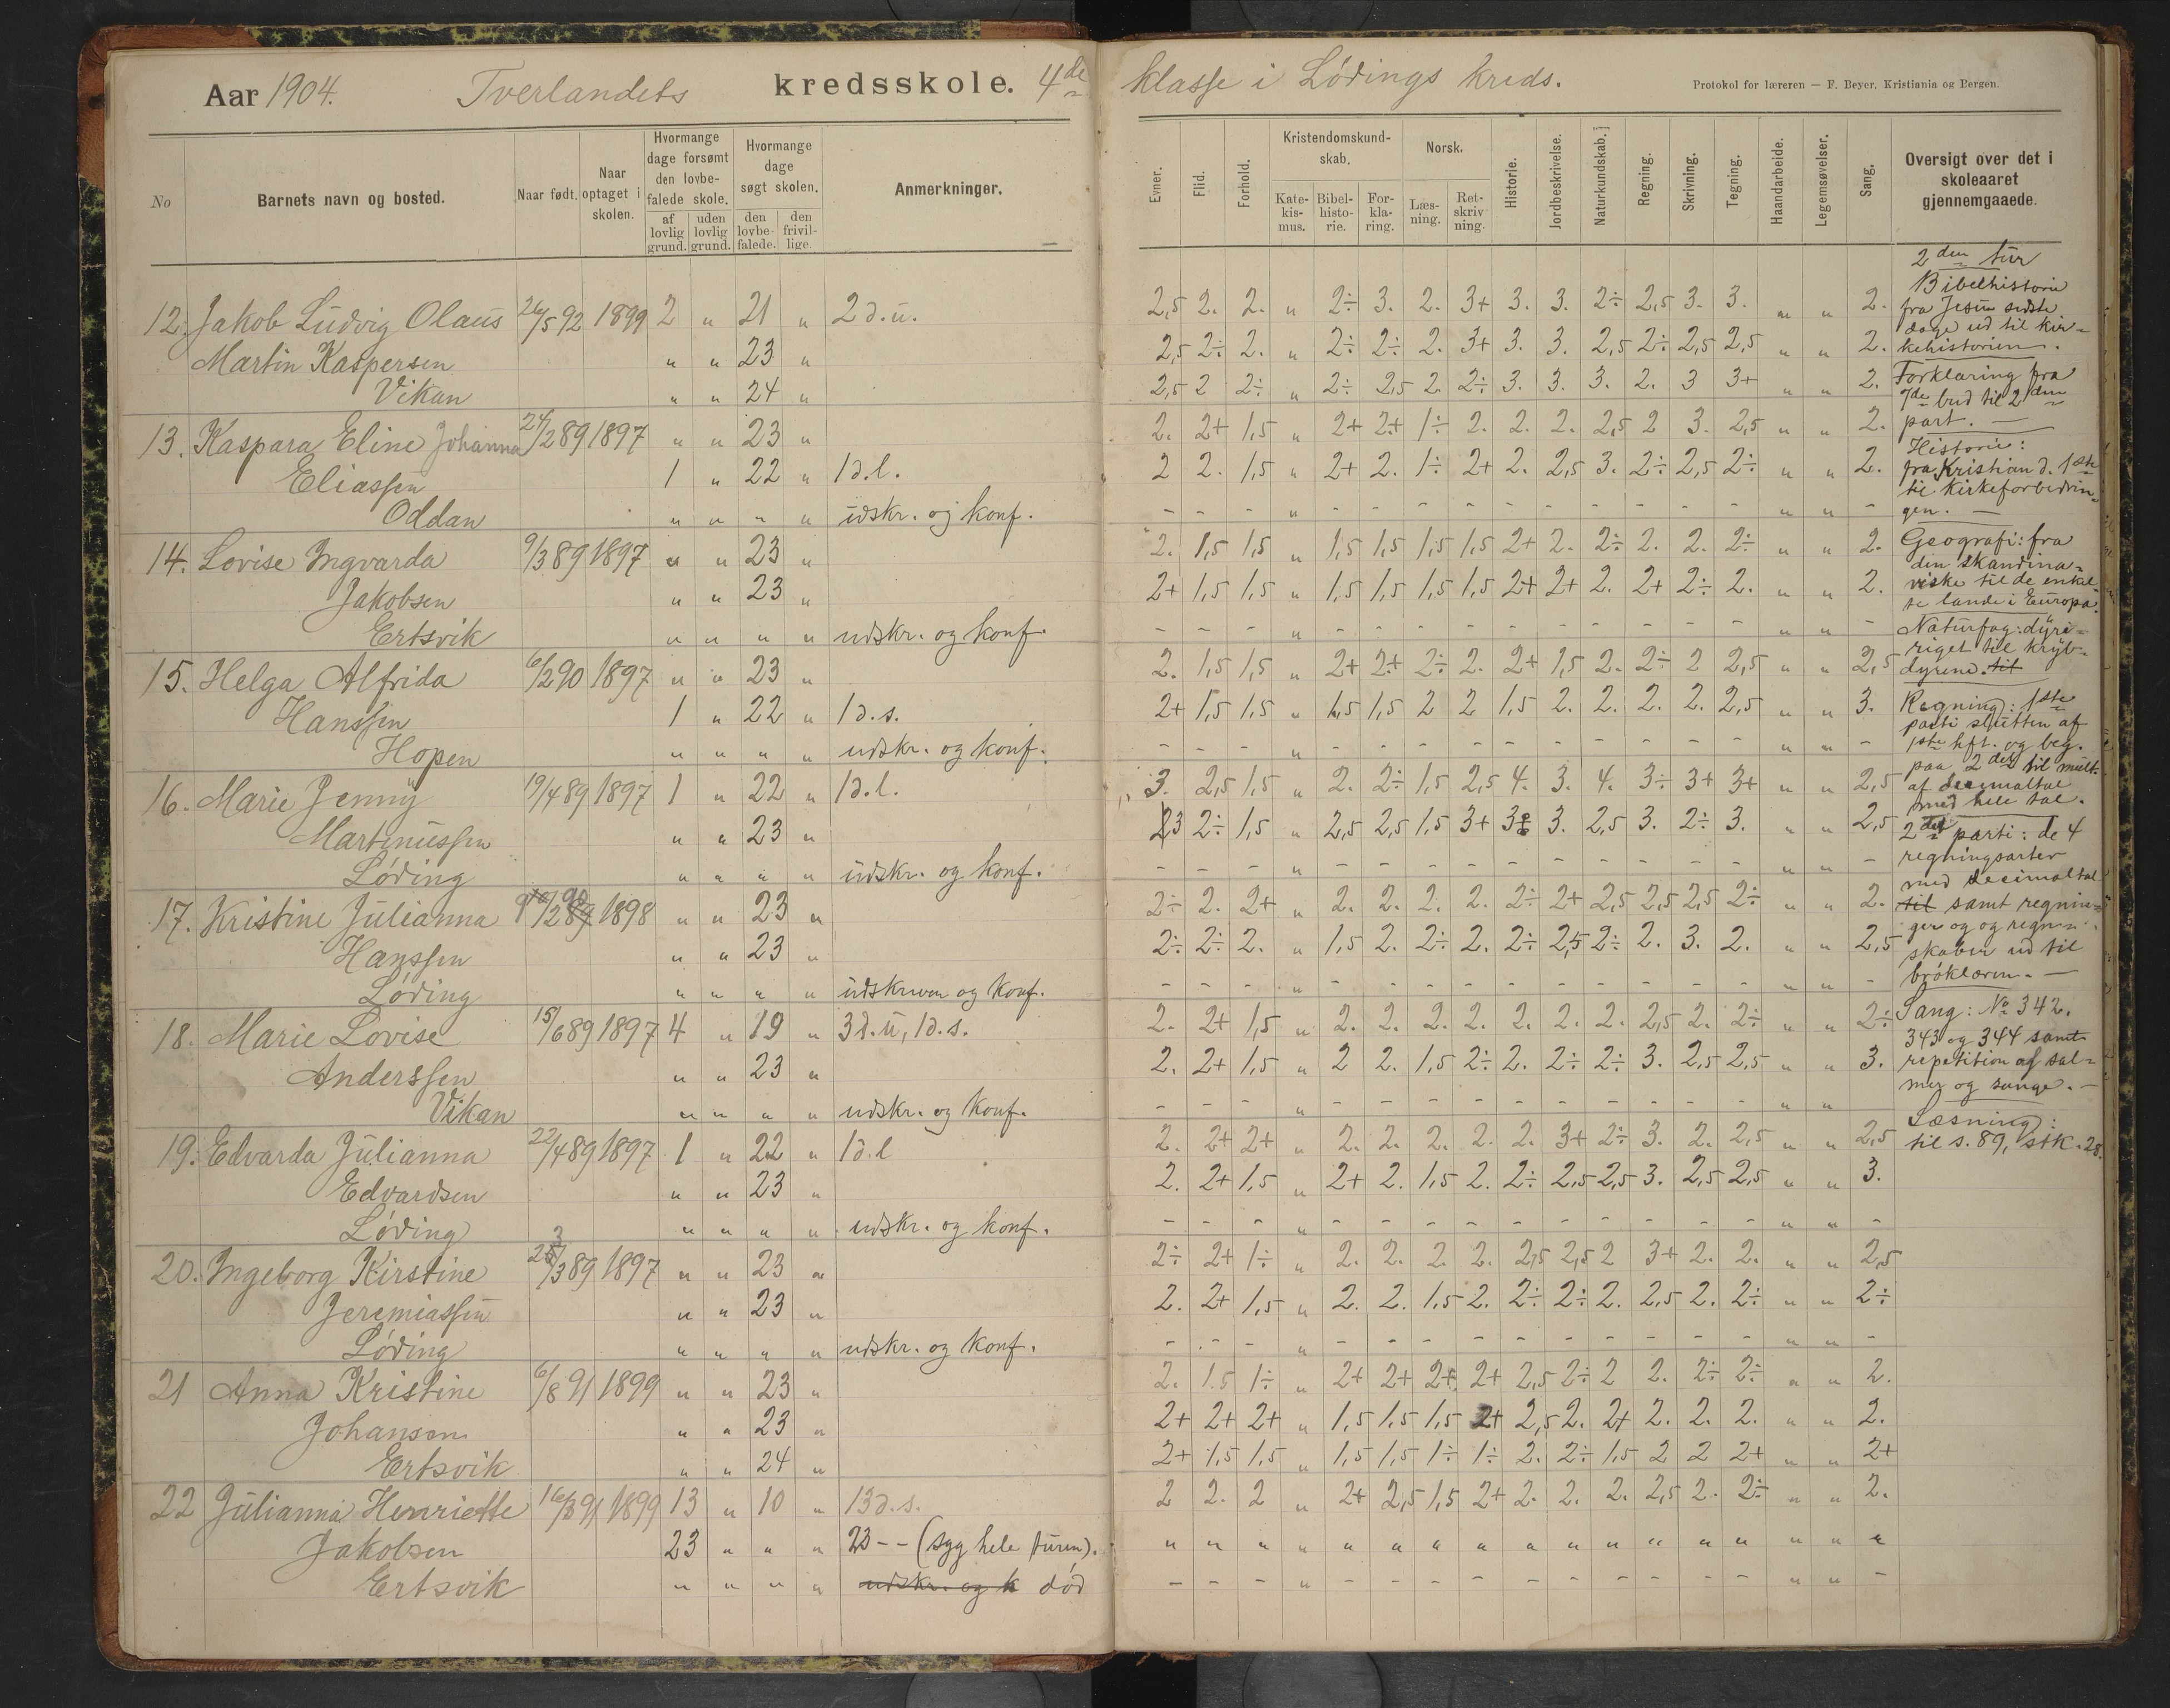 Aar 1904. Tverlandets kredsskole. 4de klasse i Lødings kreds.
Protokol for læreren — F. Beyer, Kristiania og Bergen.
No
Barnets navn og bosted.
Naar født.
Naar optaget i skolen.
Hvormange dage forsømt den lovbefalede skole.
af lovlig grund.
uden lovlig grund.
Hvormange dage søgt skolen.
den lovbefalede.
den frivillige.
Anmerkninger.
Evner.
Flid.
Forhold.
Kristendomskundskab.
Katekismus.
Bibelhistorie.
Forklaring.
Norsk.
Læsning.
Retskrivning.
Historie.
Jordbeskrivelse.
Naturkundskab.]
Regning.
Skrivning.
Tegning.
Haandarbeide.
Legemsøvelser.
Sang.
Oversigt over det i skoleaaret gjennemgaaede.
12. Jakob Ludvig Olaus 26/5 92 1899 2 " 21 " 2 d. u. 2,5 2. 2. " 2÷ 3. 2. 3+ 3. 3. 2÷ 2,5 3. 3. " " 2.
Martin Kaspersen " " 23 " 2,5 2÷ 2. " 2÷ 2÷ 2. 3+ 3. 3. 2,5 2÷ 2,5 2,5 " " 2.
Vikan " " 24 " 2,5 2 2÷ " 2÷ 2,5 2. 2÷ 3. 3. 3. 2. 3 3+ " " 2.
13. Kaspara Eline Johanna 24/2 89 1897 " " 23 " 2. 2+ 1,5 " 2+ 2+ 1÷ 2. 2. 2. 2,5 2 3. 2,5 " " 2.
Eliassen 1 " 22 " 1 d. l. 2 2. 1,5 " 2+ 2. 1÷ 2+ 2. 2,5 3. 2÷ 2,5 2÷ " " 2.
Oddan " " " " udskr. og konf. - - - " - - - - - - - - - - " " -
14. Lovise Ingvarda 9/3 89 1897 " " 23 " 2. 1,5 1,5 " 1,5 1,5 1,5 1,5 2+ 2. 2÷ 2. 2. 2÷ " " 2.
Jakobsen " " 23 " 2+ 1,5 1,5 " 1,5 1,5 1,5 1,5 2+ 2+ 2. 2+ 2÷ 2. " " 2.
Ertsvik " " " " udskr. og konf. - - - " - - - - - - - - - - " " -
15. Helga Alfrida 6/2 90 1897 " " 23 " 2. 1,5 1,5 " 2+ 2+ 2÷ 2. 2+ 1,5 2. 2÷ 2 2,5 " " 2,5
Hanssen 1 " 22 " 1 d. s. 2+ 1,5 1,5 " 1,5 1,5 2 2 1,5 2. 2. 2. 2. 2,5 " " 3.
Hopen " " " " udskr. og konf. - - - " - - - - - - - - - - " " -
16. Marie Jenny 19/4 89 1897 1 " 22 " 1 d. l. 3. 2,5 1,5 " 2. 2÷ 1,5 2,5 4. 3. 4. 3÷ 3+ 3+ " " 2,5
Martinussen " " 23 " 3 2÷ 1,5 " 2,5 2,5 1,5 3+ 3÷ 3. 2,5 3. 2÷ 3. " " 2,5
Løding " " " " udskr. og konf. - - - " - - - - - - - - - - " " -
17. Kristine Julianna /2 90 1898 " " 23 " 2÷ 2. 2+ " 2. 2. 2. 2. 2÷ 2+ 2,5 2,5 2,5 2÷ " " 2.
Hanssen " " 23 " 2÷ 2÷ 2. " 1,5 2. 2÷ 2. 2÷ 2,5 2÷ 2. 3. 2. " " 2,5
Løding " " " " udskreven og konf. - - - " - - - - - - - - - - " " -
18. Marie Lovise 15/6 89 1897 4 " 19 " 3 d. u, 1 d. s. 2. 2+ 1,5 " 2. 2. 2. 2. 2. 2. 2. 2,5 2. 2÷ " " 2÷
Anderssen " " 23 " 2. 2+ 1,5 " 2 2. 1,5 2÷ 2. 2÷ 2÷ 3. 2,5 2,5 " " 3.
Vikan " " " " udskr. og konf. - - - " - - - - - - - - - - " "
19. Edvarda Julianna 22/4 89 1897 1 " 22 " 1 d. l 2. 2+ 2+ " 2. 2. 2. 2. 2. 3+ 2÷ 3. 2. 2,5 " " 2,5
Edvardsen " " 23 " 2. 2+ 1,5 " 2+ 2. 1,5 2. 2÷ 2,5 2,5 3. 2,5 2,5 " " 3.
Løding " " " " udskr. og konf. - - - " - - - - - - - - - - " " -
20. Ingeborg Kirstine 23/3 89 1897 " " 23 " 2÷ 2+ 1÷ " 2. 2. 2. 2. 2,5 2,5 2 3+ 2. 2. " " 2,5
Jeremiassen " " 23 " 2. 2+ 1,5 " 2. 2. 1,5 2. 2÷ 2÷ 2. 2,5 2. 2÷ " " 2÷
Løding " " " " udskr. og konf. - - - " - - - - - - - - - - " " -
21 Anna Kristine 6/8 91 1899 " " 23 " 2. 1.5 1÷ " 2+ 2+ 2+ 2+ 2,5 2÷ 2 2. 2÷ 2÷ " " 2.
Johansen " " 23 " 2+ 2+ 2+ " 1,5 1,5 1,5 2+ 2,5 2. 2+ 2. 2. 2. " " 2.
Ertsvik " " 24 " 2+ 1,5 1,5 " 1,5 1,5 1÷ 1÷ 2. 2÷ 1,5 2 2 2+ " " 2+
22 Julianna Henriette 16/3 91 1899 13 " 10 " 13 d. s. 2 2. 2 " 2+ 2,5 1,5 2+ 2. 2. 2. 2,5 2. 2÷ " " 2.
Jakobsen 23 " " " 23 - - (syg hele turen). " " " " " " " " " " " " " " " " "
Ertsvik " " " " udskr. og k død - - - " - - - - - - - - - - " " -
2den tur
Bibelhistorie
fra Jesu sidste
dage ud til kir-
kehistorien.
Forklaring fra
7de bud til 2den
part. —
Historie:
fra Kristian d. 1ste
til kirkeforbedrin-
gen. —
Geografi: fra
den skandina-
viske til de enkel-
te lande i Europa.
Naturfag: dyre-
riget til kryb-
dyrene. til
Regning: 1ste
parti slutten af
1ste hft. og beg.
paa 2det til mult.
af decimaltal
med hele tal.
2det parti: de 4
regningsarter
med decimaltal
til samt regnin-
ger og og regn-
skaber ud til
brøklæren. —
Sang: No 342.
343 og 344 samt
repetition af sal-
mer og sange. —
Læsning:
til s. 89, stk. 28.